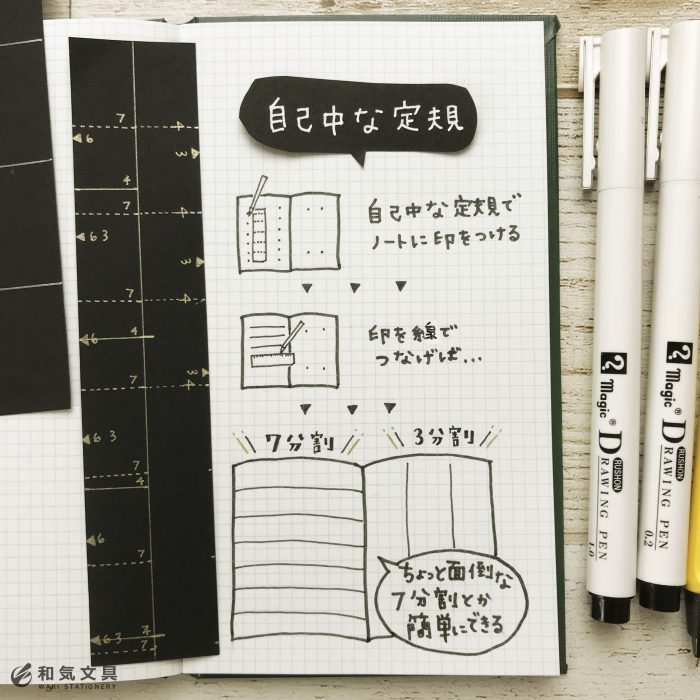 自己中な定規
自己中な定規で
ノートに印をつける
印を線で
つなげば...
7分割
3分割
ちょっと面倒な
7分割とか
簡単にできる
7
4
6
3
4
7
4
6 3
3
7
4
4
6
7
3
4
6 3
7
4
6
7
6 3
4
7
? Magic®
DRAWING PEN
RUSHON
1.0
? Magic®
DRAWING PEN
RUSHON
0.2
和気文具
WAKI STATIONERY